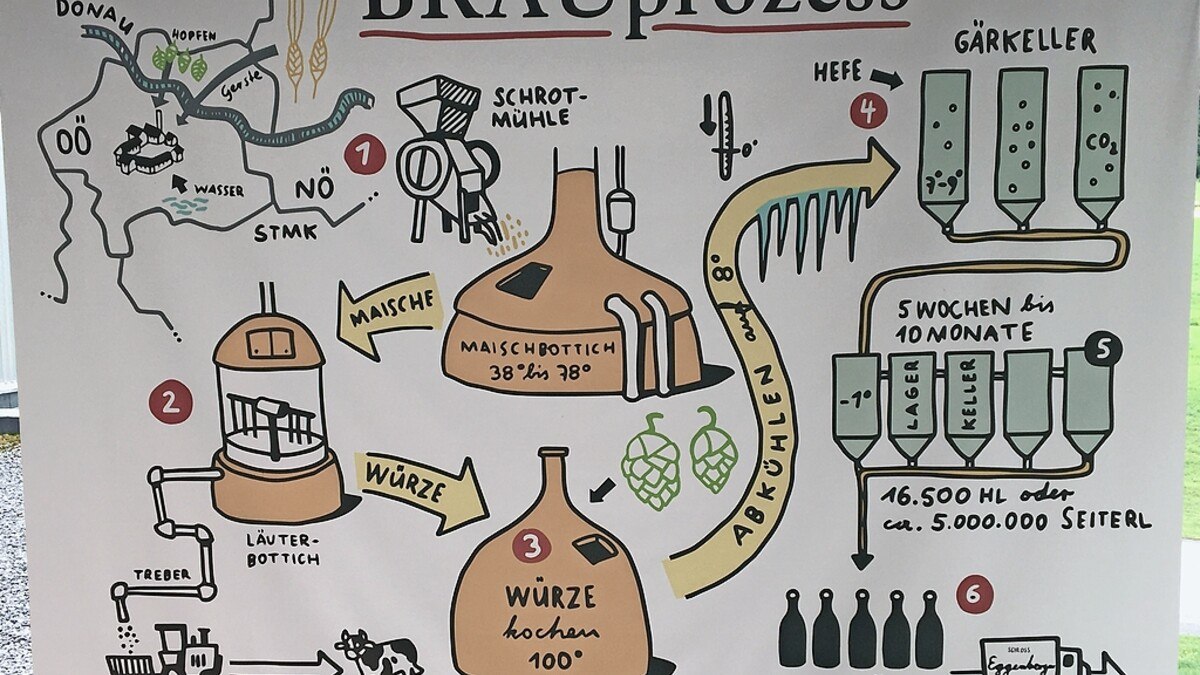 BRAUprozess
DONAU
HOPFEN
Gerste
OÖ
WASSER
NÖ
STMK
1
SCHROT-
MÜHLE
MAISCHBOTTICH
38° bis 78°
MAISCHE
2
LÄUTER-
BOTTICH
TREBER
WÜRZE
3
WÜRZE
kochen
100°
ABKÜHLEN auf 8°
0°
GÄRKELLER
HEFE
4
7-9°
CO₂
5 WOCHEN bis
10 MONATE
5
-1°
LAGER
KELLER
16.500 HL oder
ca. 5.000.000 SEITERL
6
SCHLOSS
Eggenberger